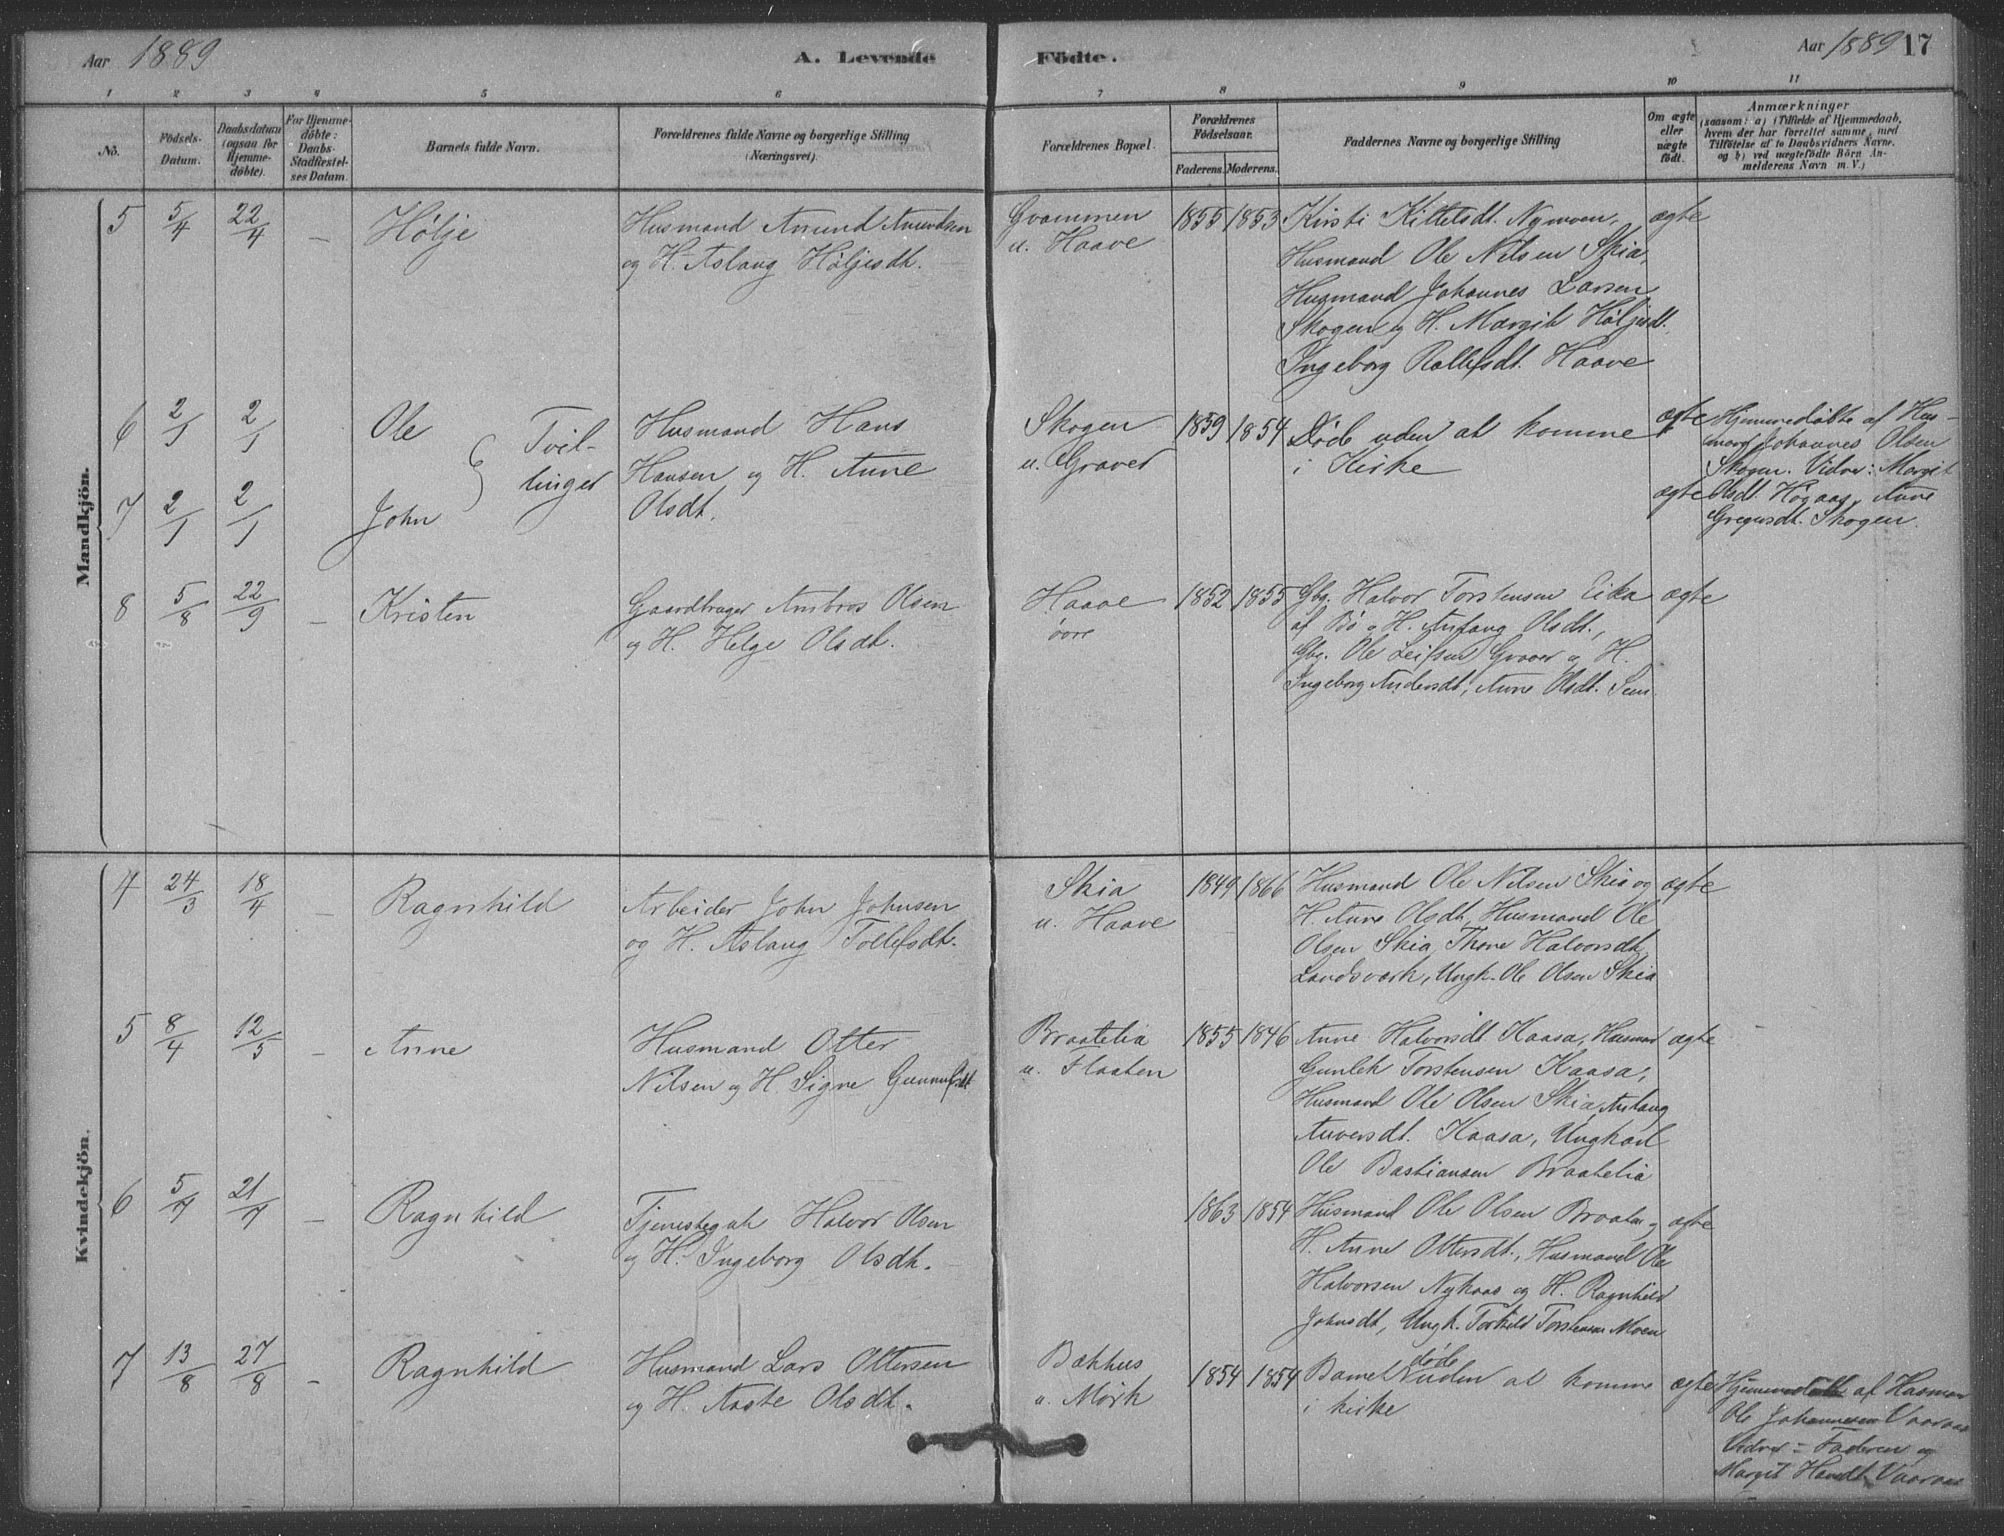 Aar 1889 A. Levende Födte. Aar 1889 17
1 2 3 4 5 6 7 8 9 10 11
No.
Födsels-
Datum.
Daabsdatum
(ogsaa for
Hjemme-
döbte).
For Hjemme-
döbte:
Daabs-
Stadfæstel-
ses Datum.
Barnets fulde Navn.
Forældrenes fulde Navne og borgerlige Stilling
(Næringsvei).
Forældrenes Bopæl.
Forældrenes
Födselsaar.
Faderens. Moderens.
Faddernes Navne og borgerlige Stilling
Om ægte
eller
uægte
födt.
Anmærkninger
(saasom: a) i Tilfælde af Hjemmedaab,
hvem der har forrettet samme, med
Tilföielse af to Daabsvidners Navne.
og b) ved uægtefödte Börn An-
melderens Navn m. V.)
Mandkjön.
5 5/4 22/4 – Hølje
Husmand Amund Amundsen
og H. Aslaug Høljesdt.
Gvammen
u. Haave
1855 1853
Kirsti Kittelsdt. Nymoen,
Husmand Ole Nilsen Skia,
Husmand Johannes Larsen
Skogen og H. Margit Høljesdt.
Ingeborg Rollefsdt. Haave
ægte
6 2/1 2/1 Ole
7 2/1 2/1 John
Tvil-
linger
Husmand Hans
Hansen og H. Anne
Olsdt.
Skogen
u. Graver
1859 1854
Døde uden at komme
i Kirke
ægte
ægte
Hjemmedøbte af Hus-
mand Johannes Olsen
Skogen. Vidner: Margit
Olsdt. Høgaas, Anne
Gregersdt. Skogen.
8 5/8 22/9 – Kristen
Gaardbruger Ambros Olsen
og H. Helge Olsdt.
Haave
øvre
1852 1855
Gbg. Halvor Torstensen Eika
af Bø og H. Anlaug Olsdt.,
Gbg. Ole Leifsen Graver og H.
Ingeborg Andersdt, Anne Olsdt. Sem
ægte
Kvindekjön.
4 24/3 18/4 – Ragnhild
Arbeider John Johnsen
og H. Aslaug Tollefsdt.
Skia
u. Haave
1849 1866
Husmand Ole Nilsen Skia og
H. Anne Olsdt, Husmand Ole
Olsen Skia, Thone Halvorsdt,
Landsværk, Ungk. Ole Olsen Skia
ægte
5 8/4 12/5 – Anne
Husmand Otter
Nilsen og H. Signe Gunnulfsdt
Braatelia
u. Flaaten
1855 1846
Anne Halvorsdt Kaasa, Husmand
Gunlek Torstensen Kaasa,
Husmand Ole Olsen Skia, Anlaug
Anversdt. Kaasa, Ungkarl
Ole Bastiansen Braatelia
ægte
6 5/7 21/7 – Ragnhild
Tjenestegut Halvor Olsen
og H. Ingeborg Olsdt.
1863 1854
Husmand Ole Olsen Braaten og
H. Anne Ottersdt., Husmand Ole
Halvorsen Nykaas og H. Ragnhild
Johnsdt, Ungk. Torkild Torstensen Moen
ægte
7 13/8 27/8 – Ragnhild
Husmand Lars Ottersen
og H. Aaste Olsdt.
Bækhus
u. Mørk
1854 1854
Barnet døde uden at komme
i kirke
ægte
Hjemmedøbt af Husman
Ole Johannesen Vaaraas
Vidner = Faderen og
Margit Hansdt. Vaaraas